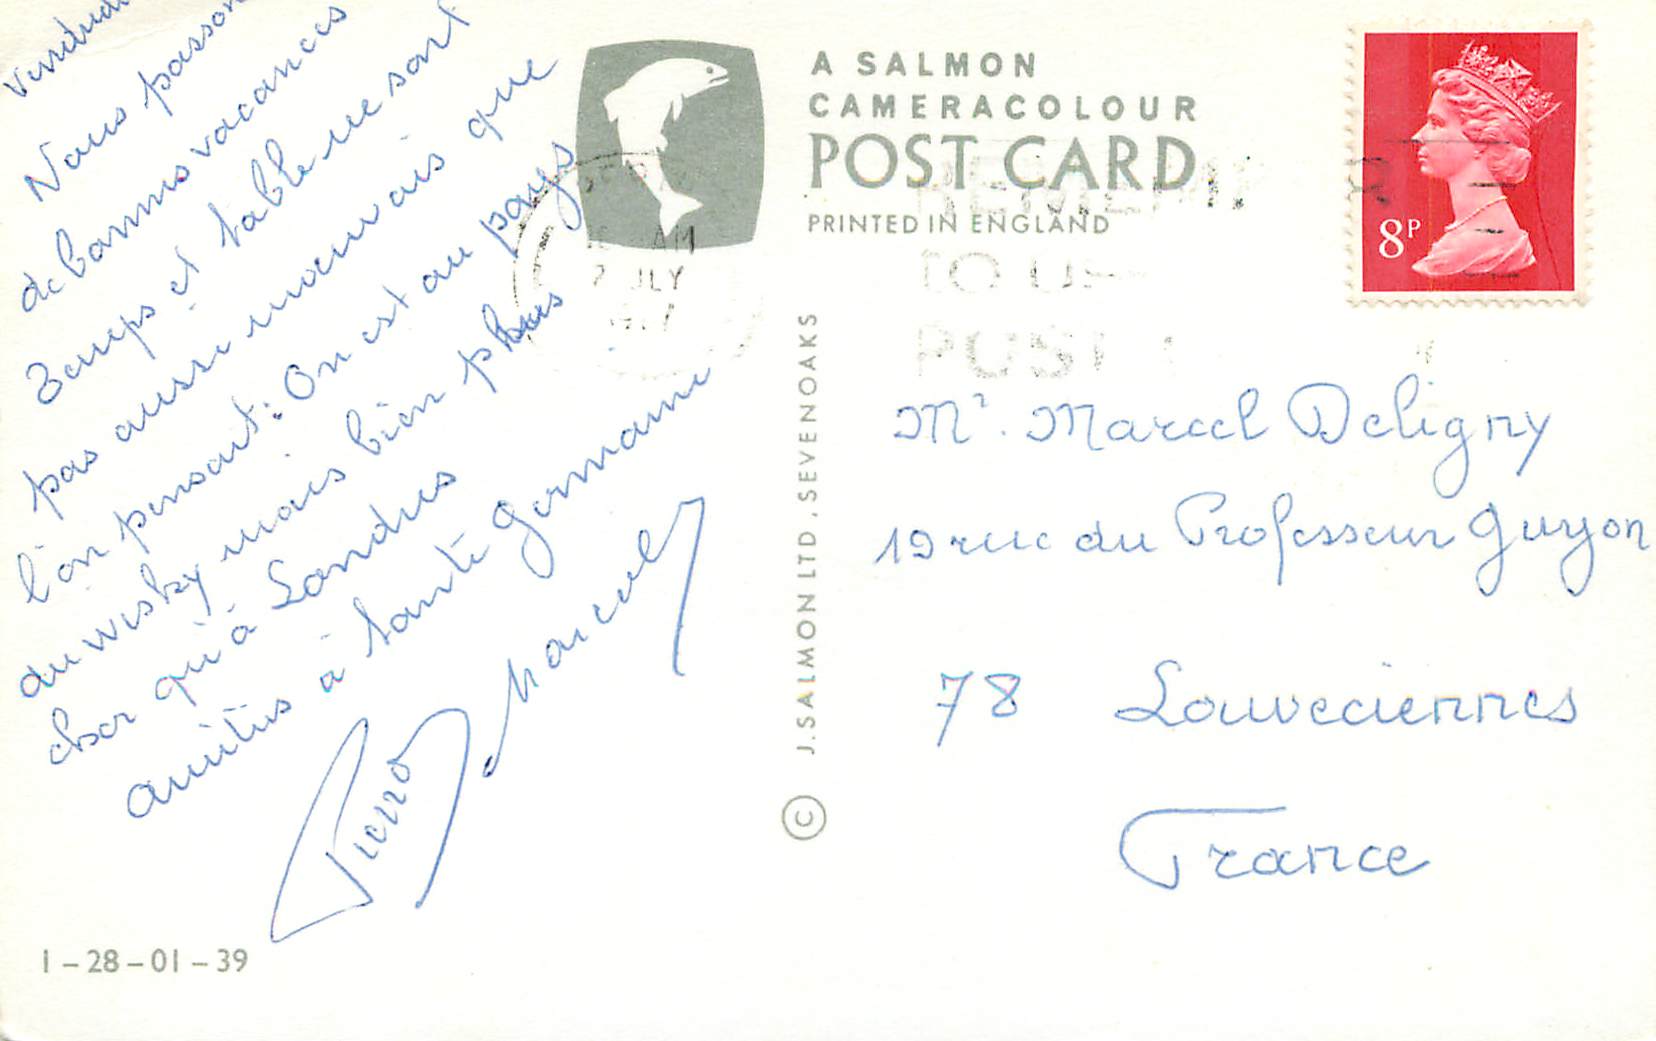 Vendredi
Nous passons
de bonnes vacances
Temps et table ne sont
pas aussi mauvais que
l'on pensait: On est au pays
du wisky mais bien plus
cher qu'à Londres
amitiés à tante Germaine
Pierre Marcel
1-28-01-39
A SALMON
CAMERACOLOUR
POST CARD
PRINTED IN ENGLAND
J. SALMON LTD., SEVENOAKS ©
AM
2 JLY
REMEM
TO USE
POST
8P
Mr. Marcel Deligny
19 rue du Professeur Guyon
78 Louveciennes
France